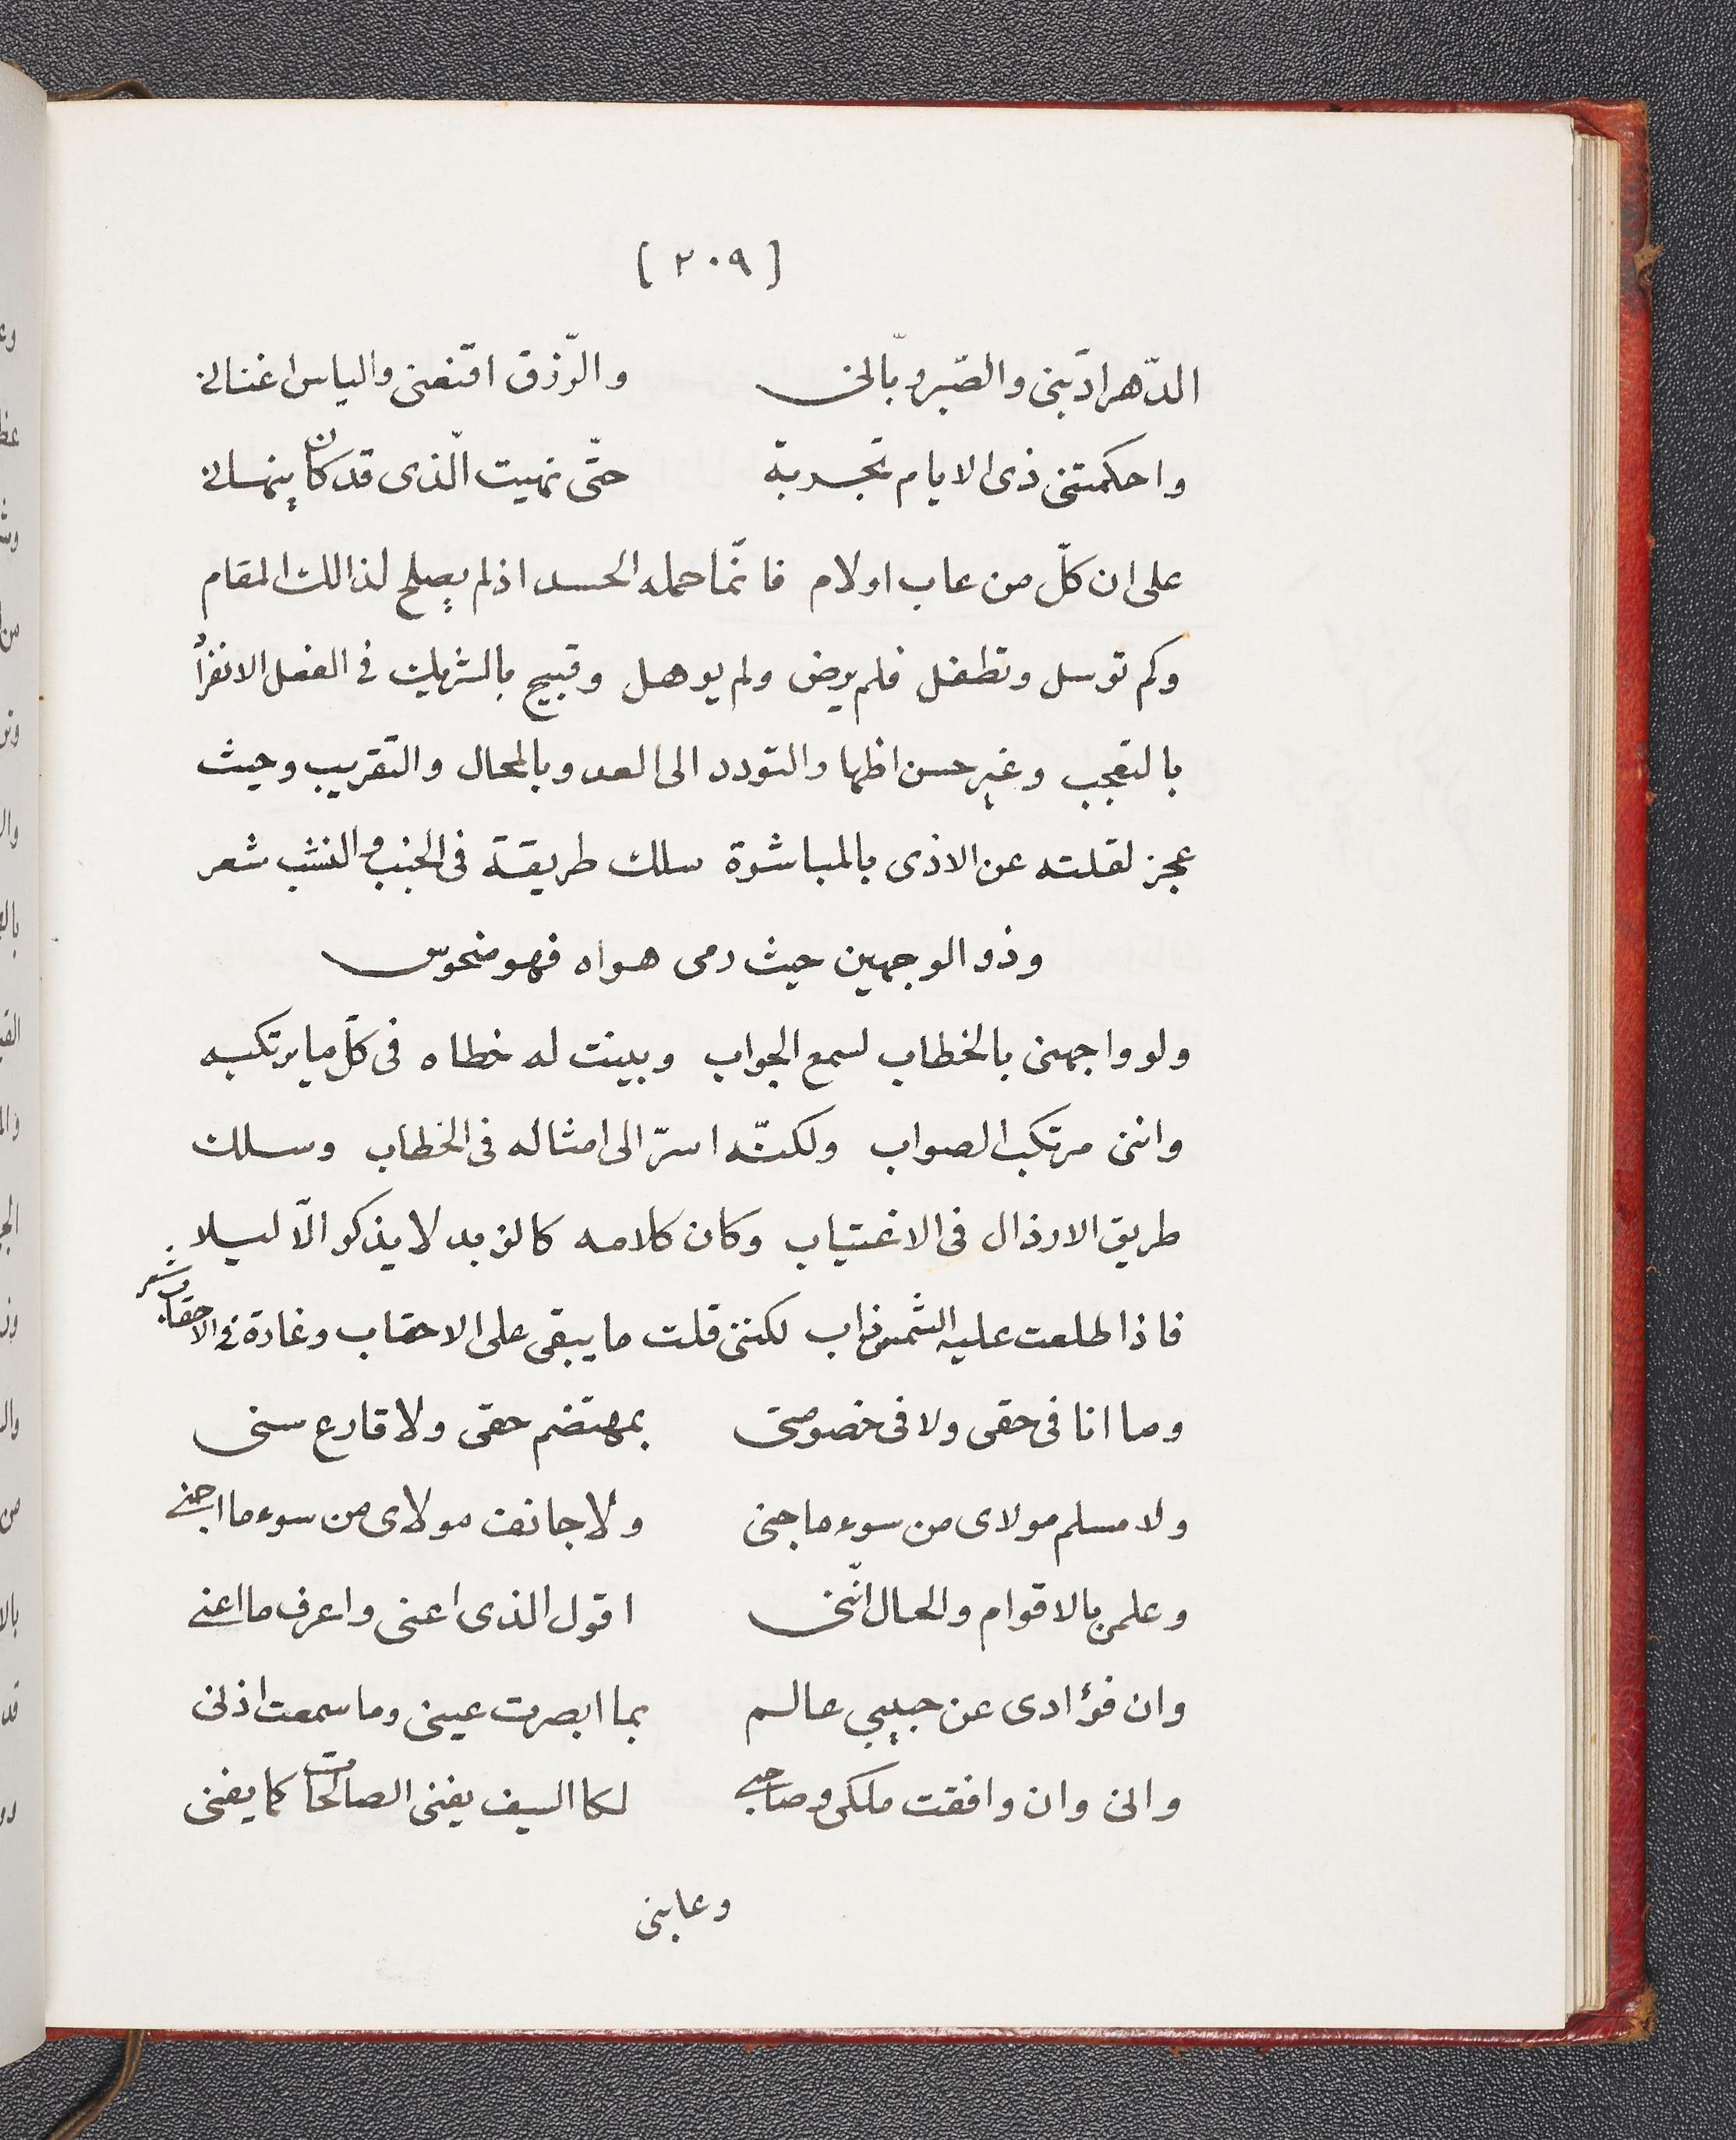 [ ٢٠٩ ]
الدّهر ادّبنى والصّبر ربّانى والرّزق اقنعنى والياس اغنانى
واحكمتنى ذى الايام تجربة حتّى نهيت الّذى قد كان ينهانى
على ان كلّ من عاب اولام فانّما حمله الحسد اذ لم يصلح لذالك المقام
وكم توسل وتطفل فلم يرض ولم يوهل وقبيح بالشريك فى الفضل
بالتعجب وغير حسن والتودد الى العد وبالمحال والتقريب وحيث
عجز لقلته عن الاذى بالمباشرة سلك طريقة فى الجنب و شعر
وذو الوجهين حيث رمى هواه فهو منحوس
ولو واجهنى بالخطاب لسمع الجواب وبينت له خطاه فى كلّ ما يرتكبه
واننى مرتكب الصواب ولكنّه اسرّ الى امثاله فى الخطاب وسلك
طريق الارذال فى الاغتياب وكان كلامه كالزبد لا يذكر الّا ليلا
فاذا طلعت عليه الشمس ذاب لكننى قلت ما يبقى على الاحقاب وغادة فى الاحقاب شعر
وما انا فى حقى ولا فى خصومتى بمهتضم حقى ولا قارع سنى
ولا مسلم مولاى من سوء ما جنى ولا خائف مولاى من سوء ما اجنى
وعلمى بالاقوام والحال انّنى اقول الذى اعنى واعرف ما اعنى
وان فؤادى عن حبيبى عالم بما ابصرت عينى وما سمعت اذنى
وانى وان وافقت ملكى وصاحبى لكا السيف يفنى الصالحات كما يفنى
وعابنى